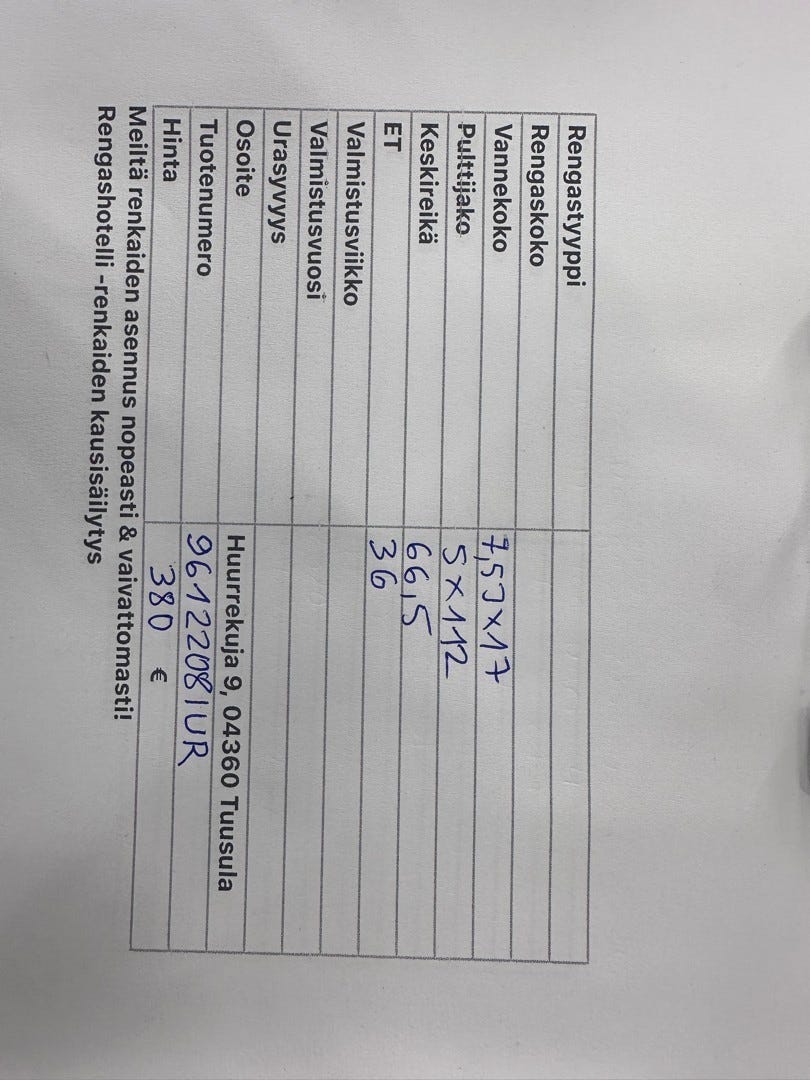 Rengastyyppi
Rengaskoko
Vannekoko 7,5Jx17
Pulttijako 5x112
Keskireikä 66,5
ET 36
Valmistusviikko
Valmistusvuosi
Urasyvyys
Osoite Huurrekuja 9, 04360 Tuusula
Tuotenumero 96122081UR
Hinta 380 €
Meiltä renkaiden asennus nopeasti & vaivattomasti!
Rengashotelli -renkaiden kausisäilytys